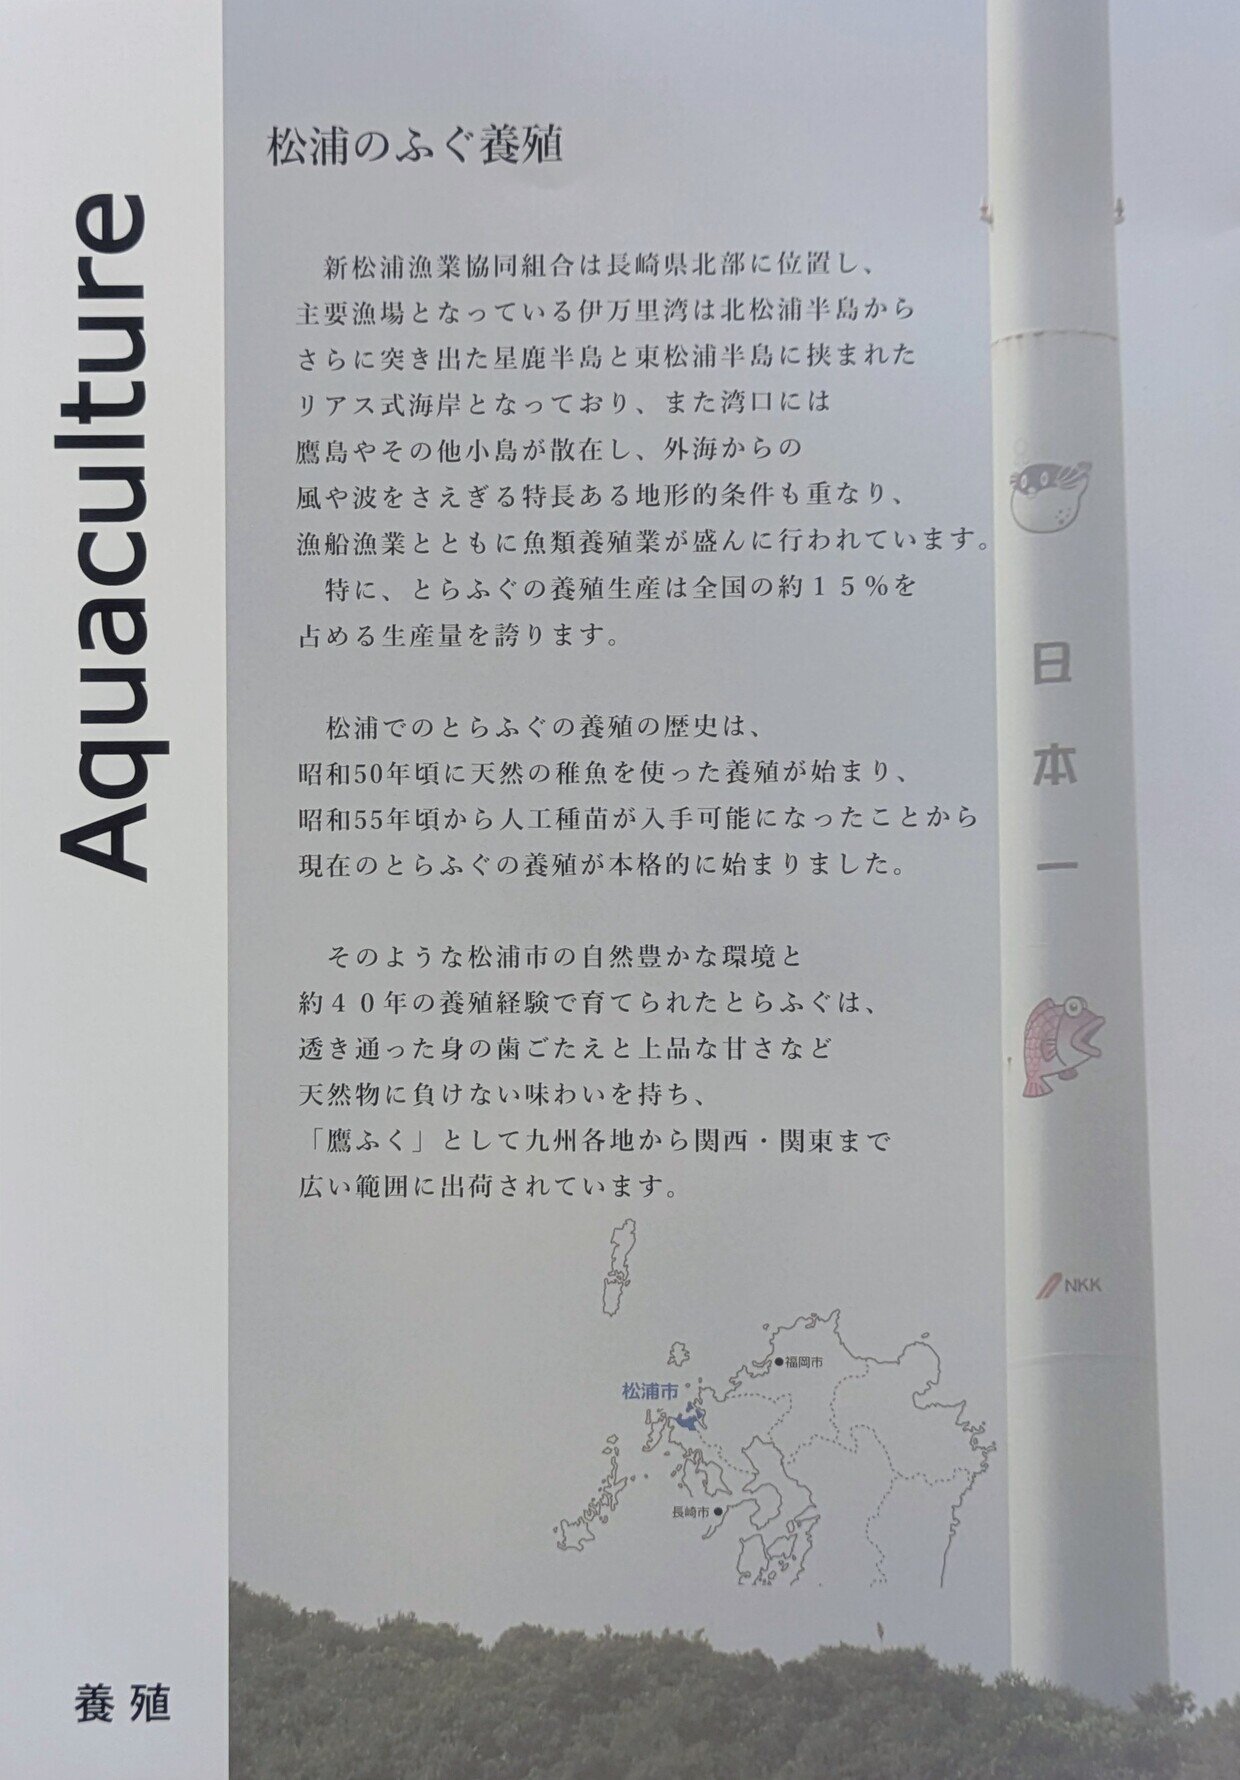 Aquaculture
養殖
松浦のふぐ養殖
新松浦漁業協同組合は長崎県北部に位置し、
主要漁場となっている伊万里湾は北松浦半島から
さらに突き出た星鹿半島と東松浦半島に挟まれた
リアス式海岸となっており、また湾口には
鷹島やその他小島が散在し、外海からの
風や波をさえぎる特長ある地形的条件も重なり、
漁船漁業とともに魚類養殖業が盛んに行われています。
特に、とらふぐの養殖生産は全国の約１５％を
占める生産量を誇ります。
松浦でのとらふぐの養殖の歴史は、
昭和50年頃に天然の稚魚を使った養殖が始まり、
昭和55年頃から人工種苗が入手可能になったことから
現在のとらふぐの養殖が本格的に始まりました。
そのような松浦市の自然豊かな環境と
約４０年の養殖経験で育てられたとらふぐは、
透き通った身の歯ごたえと上品な甘さなど
天然物に負けない味わいを持ち、
「鷹ふく」として九州各地から関西・関東まで
広い範囲に出荷されています。
日本一
NKK
福岡市
松浦市
長崎市